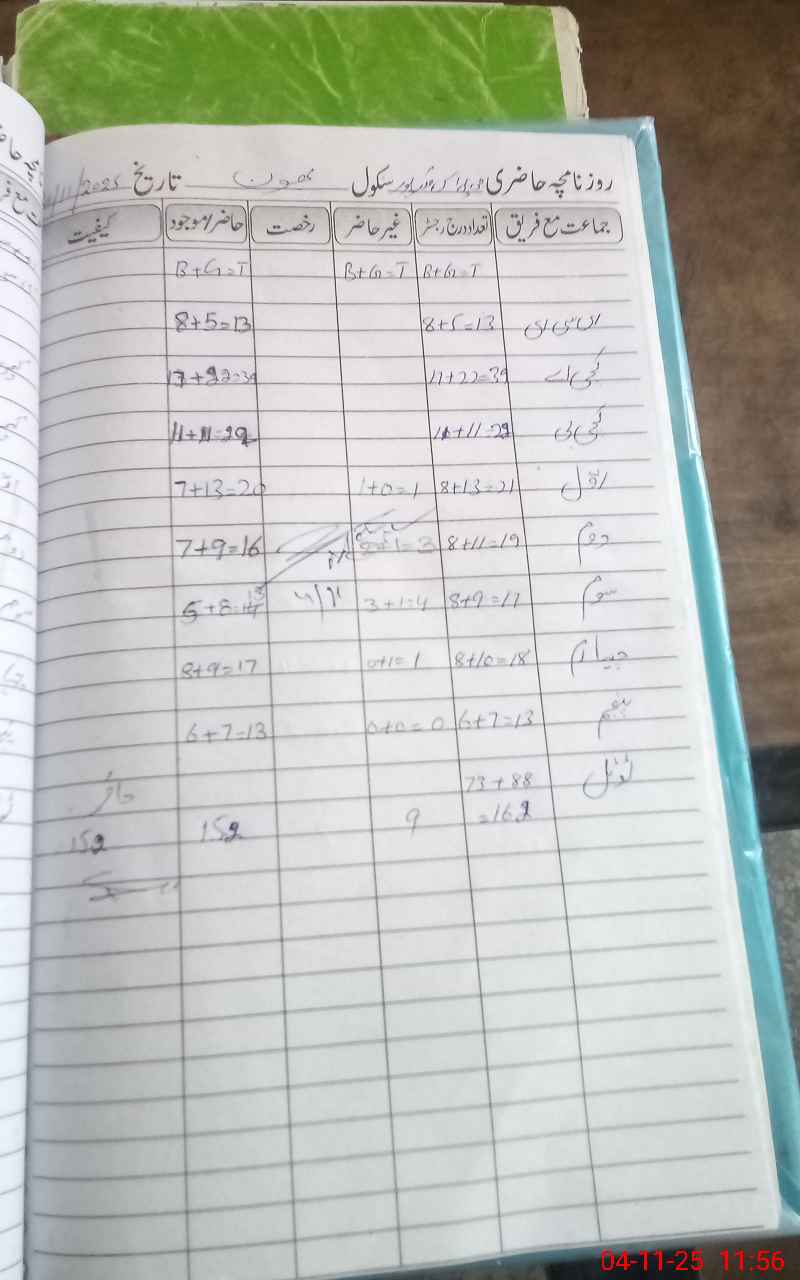 روزنامچہ حاضری سکول تاریخ /11/2025
جماعت مع فریق تعداد درج رجسٹر غیر حاضر رخصت حاضر/موجود کیفیت
B+G=T B+G=T B+G=T
ای سی ای 8+5=13 8+5=13
کچی اے 17+22=39 17+22=39
کچی بی 11+11=22
اول 8+13=21 1+0=1 7+13=20
دوم 8+11=19 2+1=3 7+9=16
سوم 8+9=17 3+1=4
چہارم 8+10=18 0+1=1 8+9=17
پنجم 6+7=13 0+0=0 6+7=13
ٹوٹل 73+88 حاضر
=162 9 152 152
04-11-25 11:56